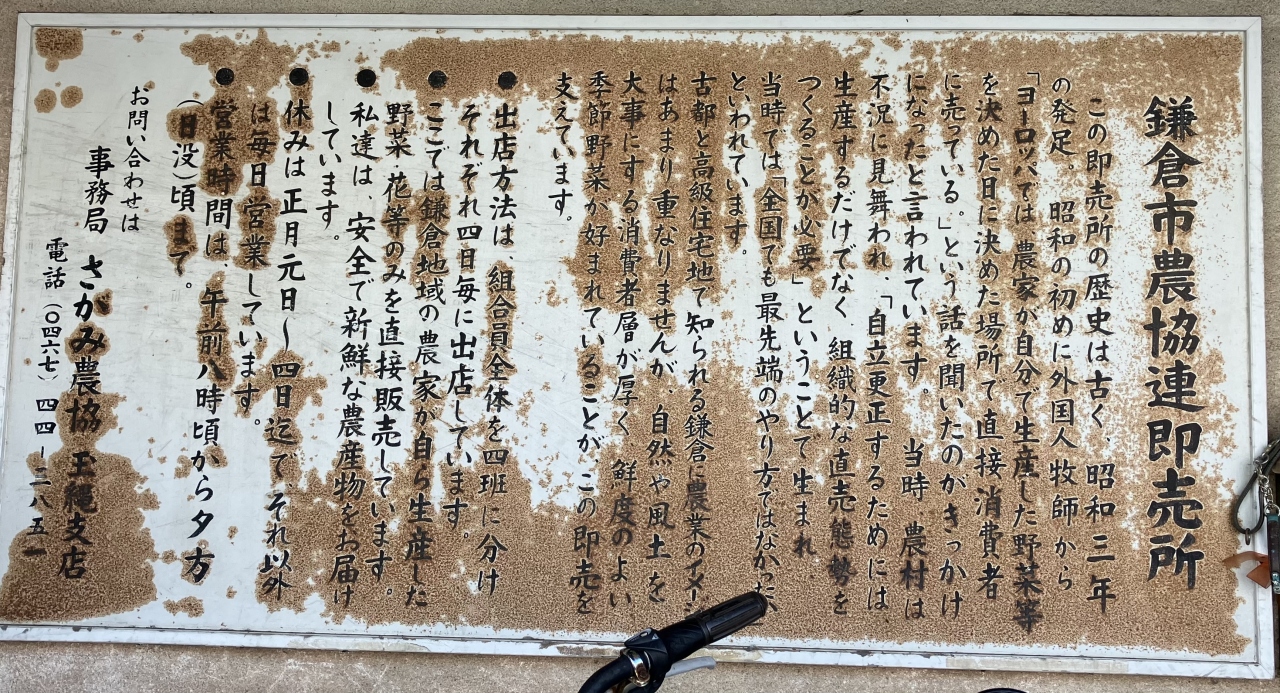 鎌倉市農協連即売所
この即売所の歴史は古く、昭和三年
の発足。昭和の初めに外国人牧師から
「ヨーロッパでは農家が自分で生産した野菜等
を決めた日に決めた場所で直接消費者
に売っている。」という話を聞いたのがきっかけ
になったと言われています。当時、農村は
不況に見舞われ、「自立更正するためには
生産するだけでなく、組織的な直売態勢を
つくることが必要」ということで生まれ
当時では「全国でも最先端のやり方ではなかったか
といわれています。
古都と高級住宅地で知られる鎌倉に農業のイメージ
はあまり重なりませんが、自然や風土を
大事にする消費者層が厚く、鮮度のよい
季節野菜が好まれていることが、この即売を
支えています。
● 出店方法は、組合員全体を四班に分け
それぞれ四日毎に出店しています。
● ここでは鎌倉地域の農家が自ら生産した
野菜、花等のみを直接販売しています。
● 私達は、安全で新鮮な農産物をお届け
しています。
● 休みは正月元日〜四日迄で、それ以外
は毎日営業しています。
● 営業時間は、午前八時頃から夕方
(日没)頃まで。
お問い合わせは
事務局 さがみ農協 玉縄支店
電話(〇四六七)四四-二八五一